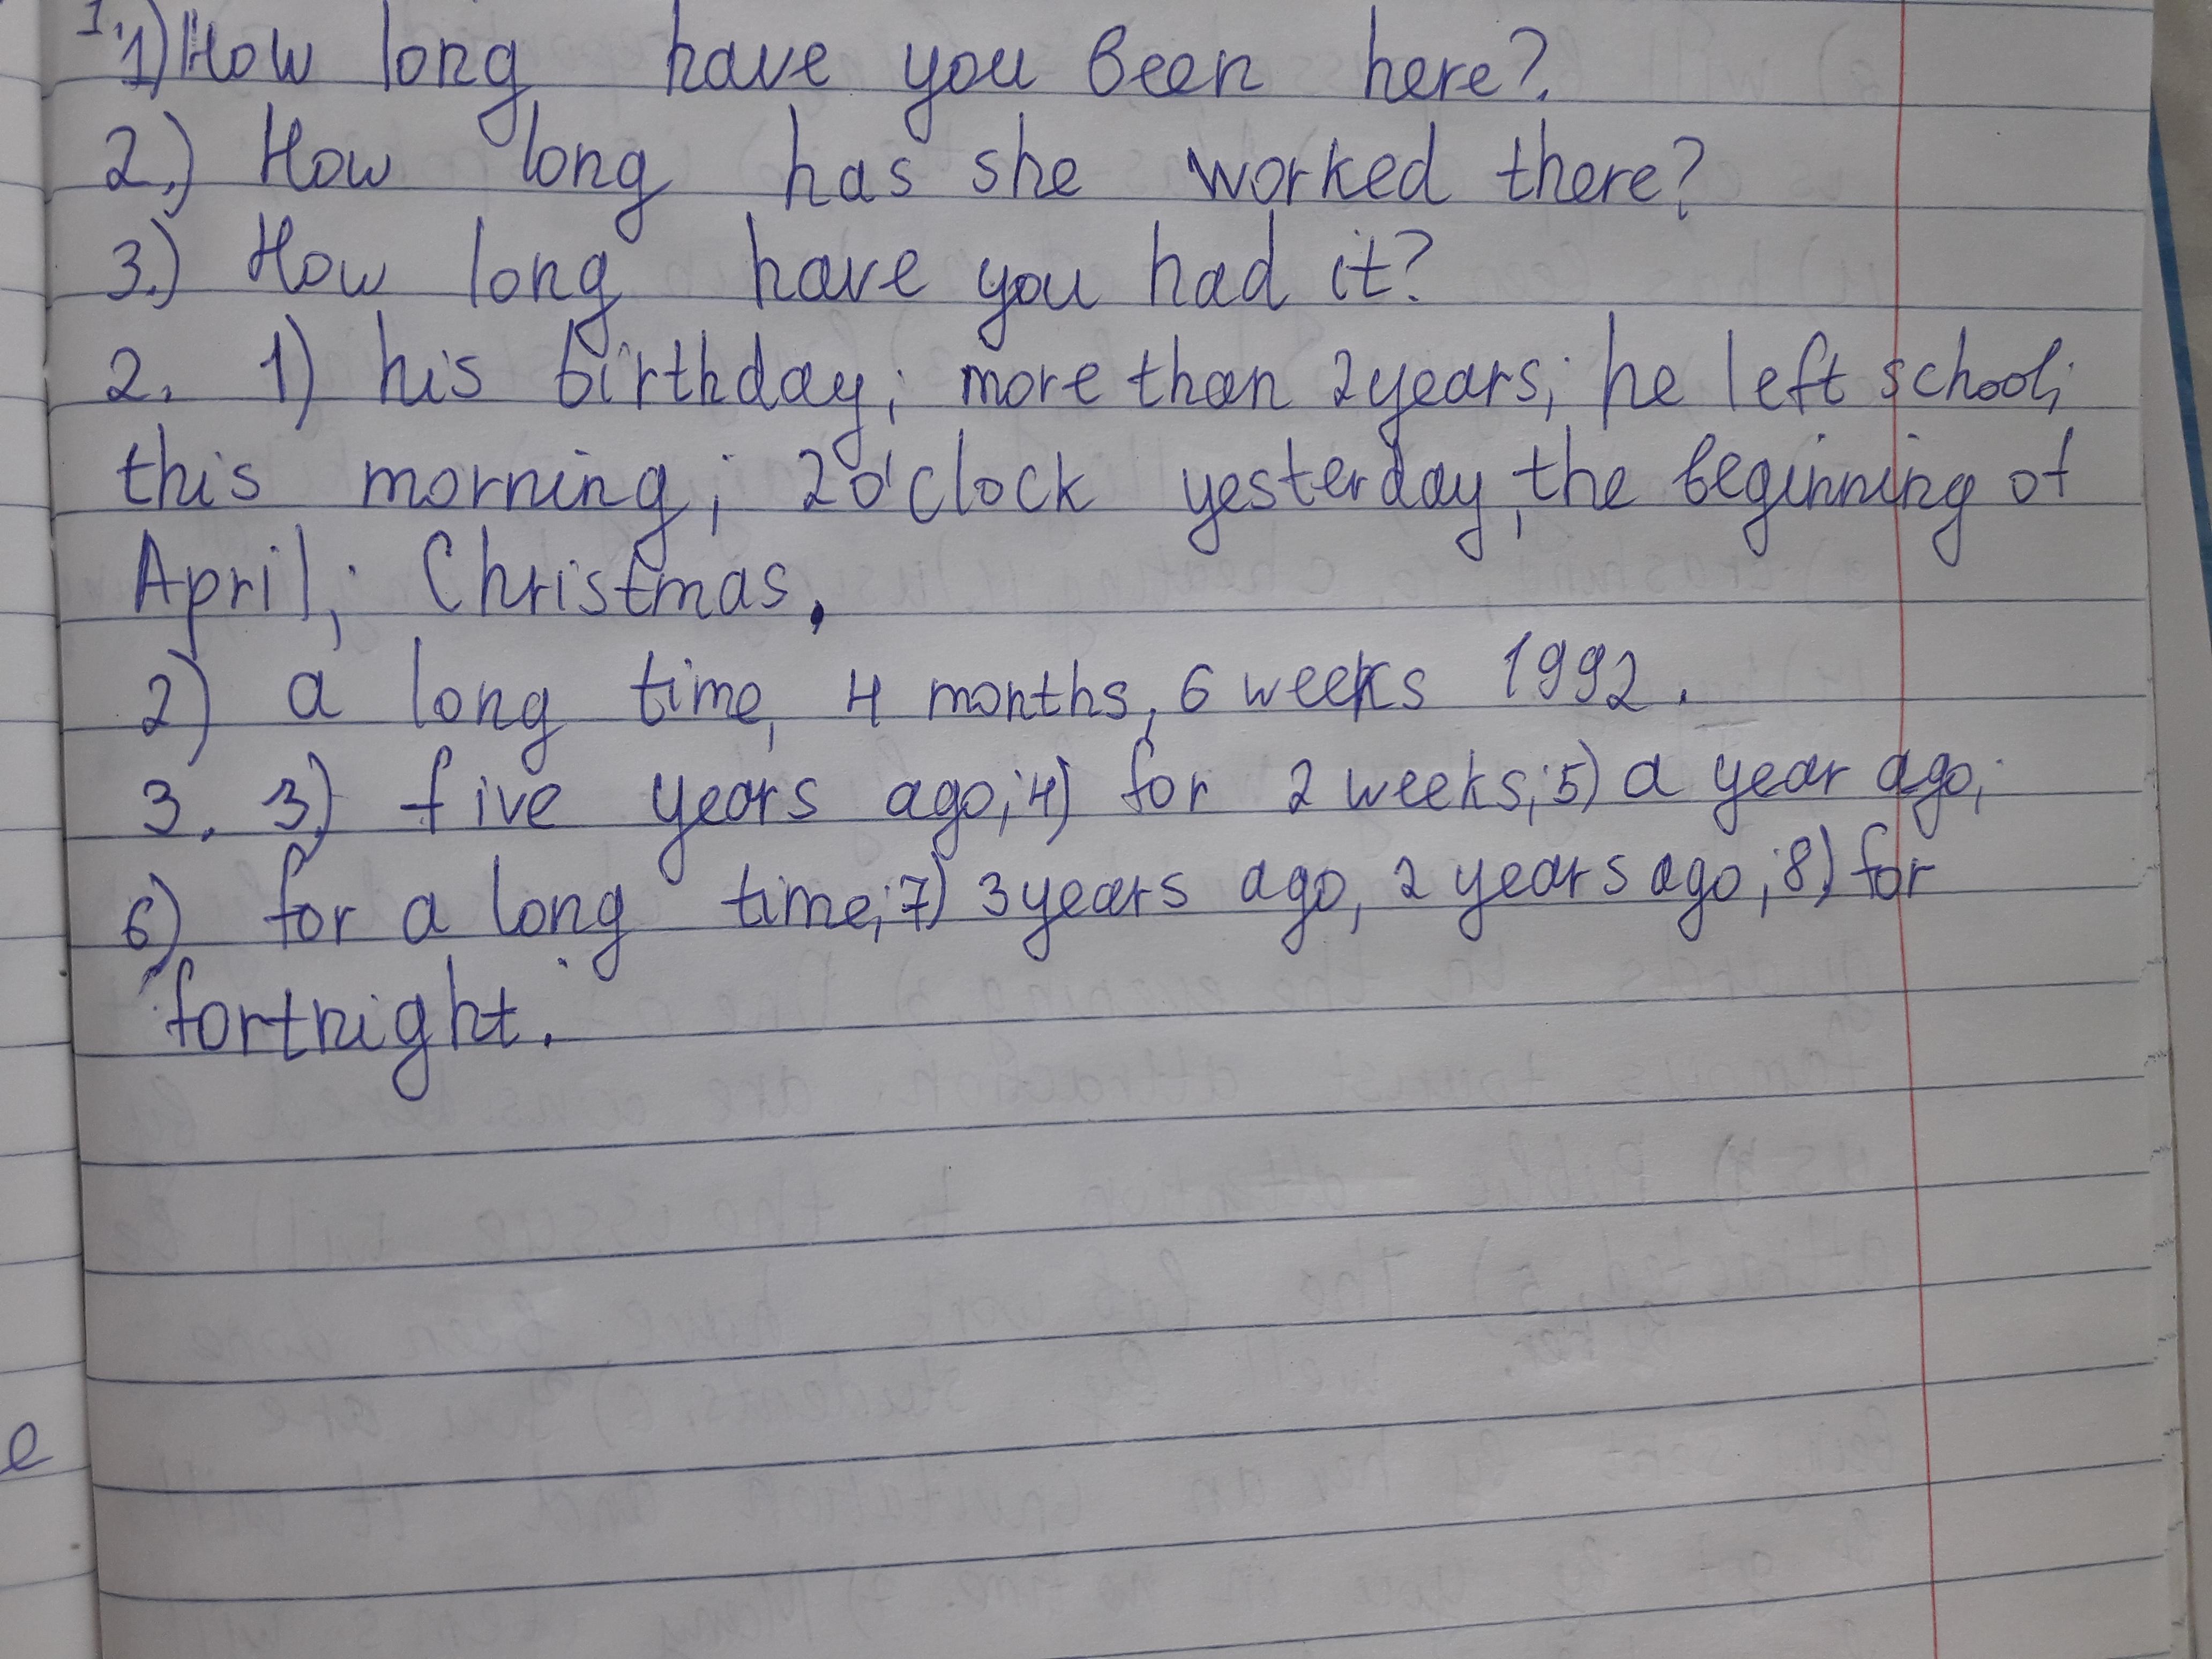 1. 1) How long have you been here?
2.) How long has she worked there?
3.) How long have you had it?
2. 1) his birthday; more than 2 years; he left school;
this morning; 2 o'clock yesterday, the beginning of
April; Christmas.
2) a long time, 4 months, 6 weeks 1992.
3. 3) five years ago; 4) for 2 weeks; 5) a year ago;
6) for a long time; 7) 3 years ago, 2 years ago; 8) for
fortnight.
e